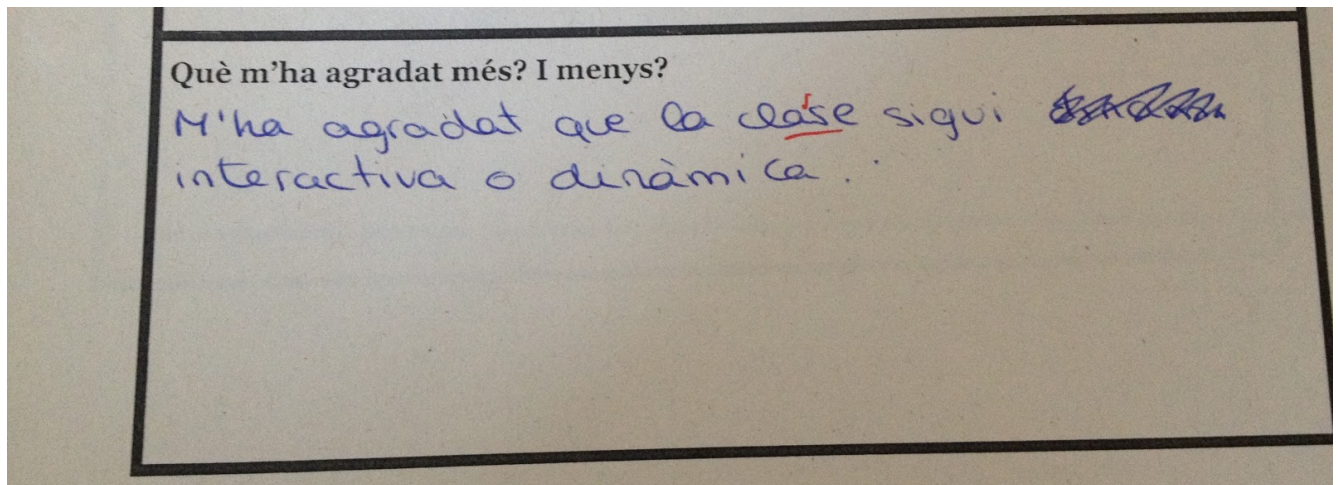 Què m'ha agradat més? I menys?
M'ha agradat que la clase sigui
interactiva o dinàmica.